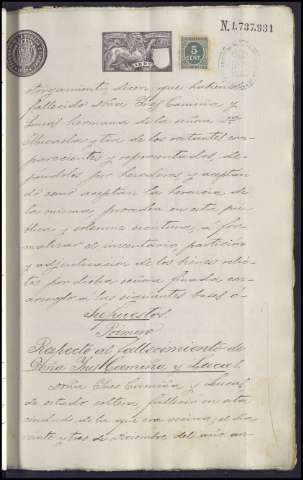 N.1.737.931
5
CENT.
otorgamiento, dicen que habiendo
fallecido doña Inés Camiña y
Lucal hermana de la señora Dª
Micaela y tia de los restantes com-
parecientes y representados, de-
jándoles por herederos y aceptan
do como aceptan la herencia de
la misma proceden en esta pú-
blica y solemne escritura, a for-
malizar el inventario, partición
y adjudicación de los bienes relic-
tos por dicha señora finada, con
arreglo a las siguientes bases ó
Supuestos.
Primero
Respecto al fallecimiento de
Doña Inés Camiña y Lucal.
Doña Inés Camiña y Lucal
de estado soltera, falleció en esta
ciudad de la que era vecina, el dia
veinte y tres de Diciembre del año an-